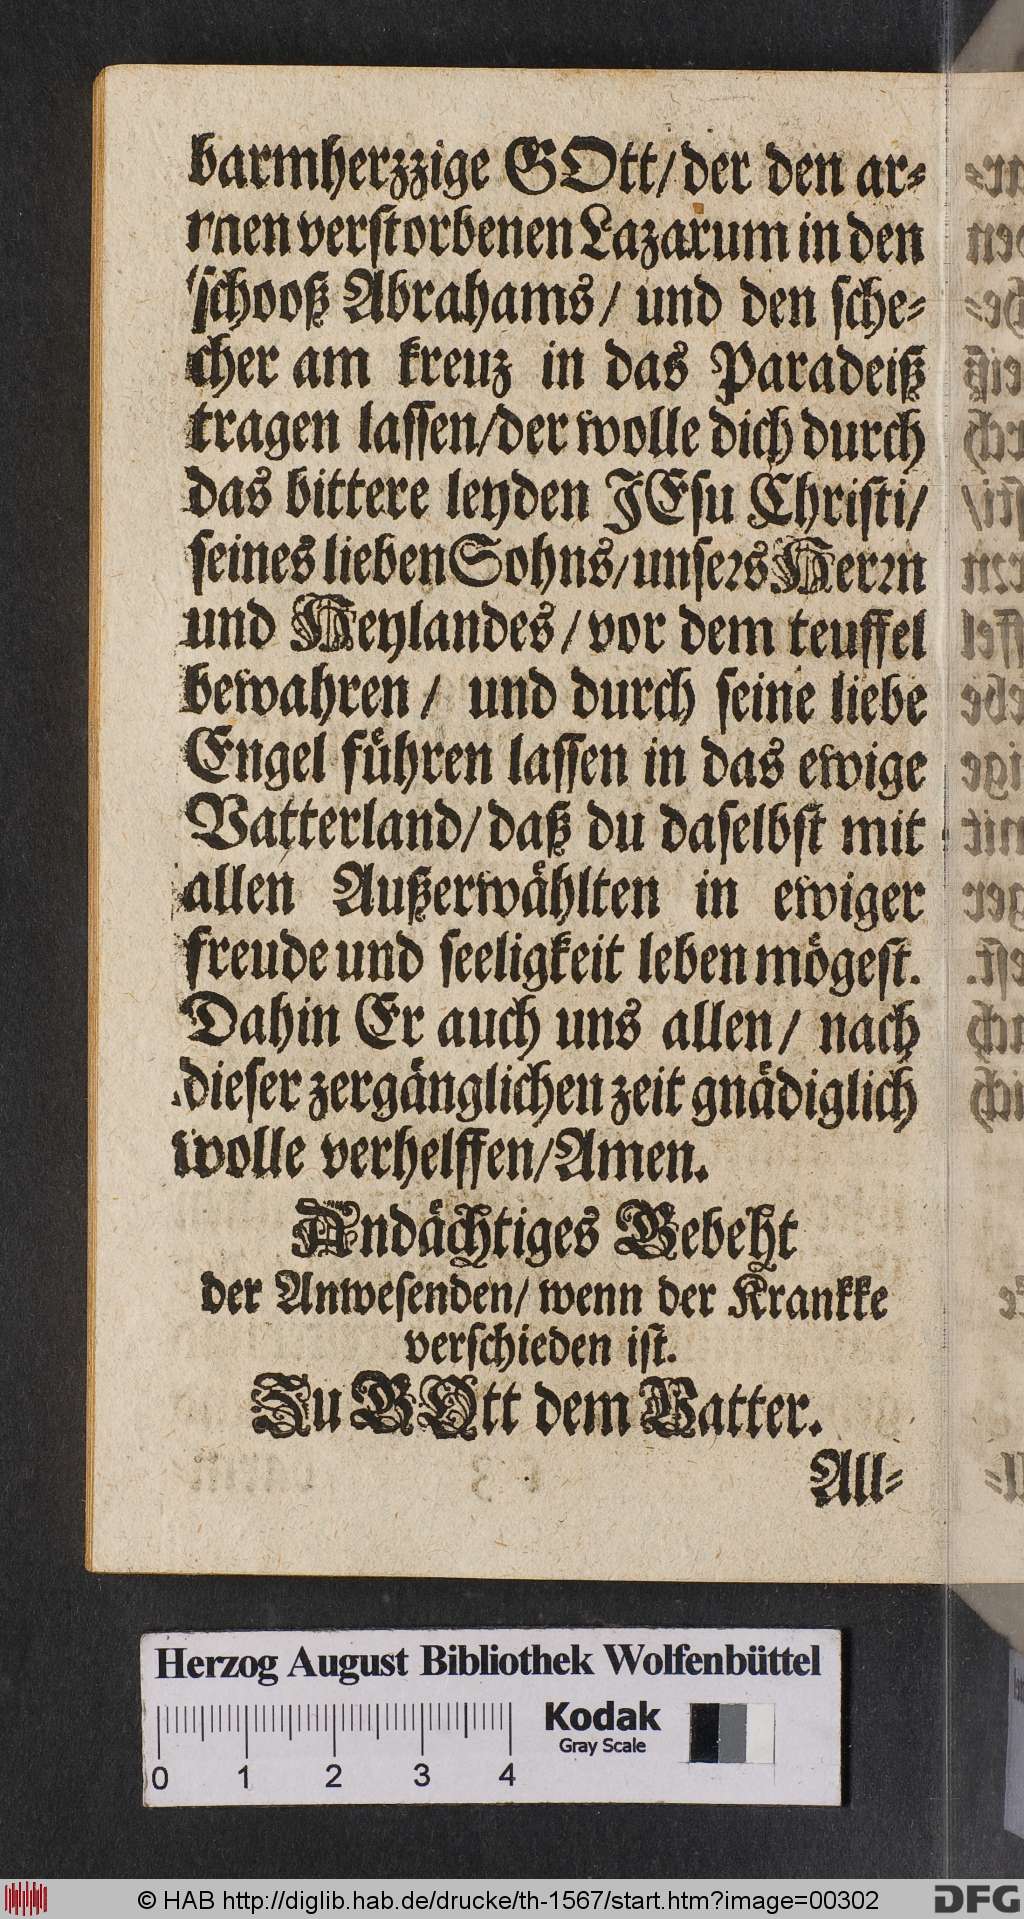 barmherzzige GOtt/ der den ar⸗
men verstorbenen Lazarum in den
schooß Abrahams/ und den sche⸗
cher am kreuz in das Paradeiß
tragen lassen/ der wolle dich durch
das bittere leyden JEsu Christi/
seines lieben Sohns/ unsers Herrn
und Heylandes/ vor dem teuffel
bewahren/ und durch seine liebe
Engel führen lassen in das ewige
Vatterland/ daß du daselbst mit
allen Außerwählten in ewiger
freude und seeligkeit leben mögest.
Dahin Er auch uns allen/ nach
dieser zergänglichen zeit gnädiglich
wolle verhelffen/ Amen.
Andächtiges Gebeht
der Anwesenden/ wenn der Krankke
verschieden ist.
Zu GOtt dem Vatter.
All⸗
Herzog August Bibliothek Wolfenbüttel
Kodak
Gray Scale
0 1 2 3 4
© HAB http://diglib.hab.de/drucke/th-1567/start.htm?image=00302
DFG